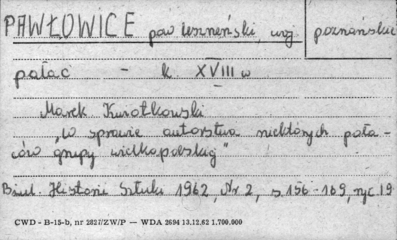 PAWŁOWICE pow leszneński, woj poznańskie
pałac - k. XVIII w
Marek Kwiatkowski
"W sprawie autorstwa niektórych pała-
ców grupy wielkopolskiej"
Biul. Historii Sztuki 1962, Nr 2, s. 156-169, ryc 19
CWD - B-15-b, nr 2827/ZW/P — WDA 2694 13.12.62 1.700.000